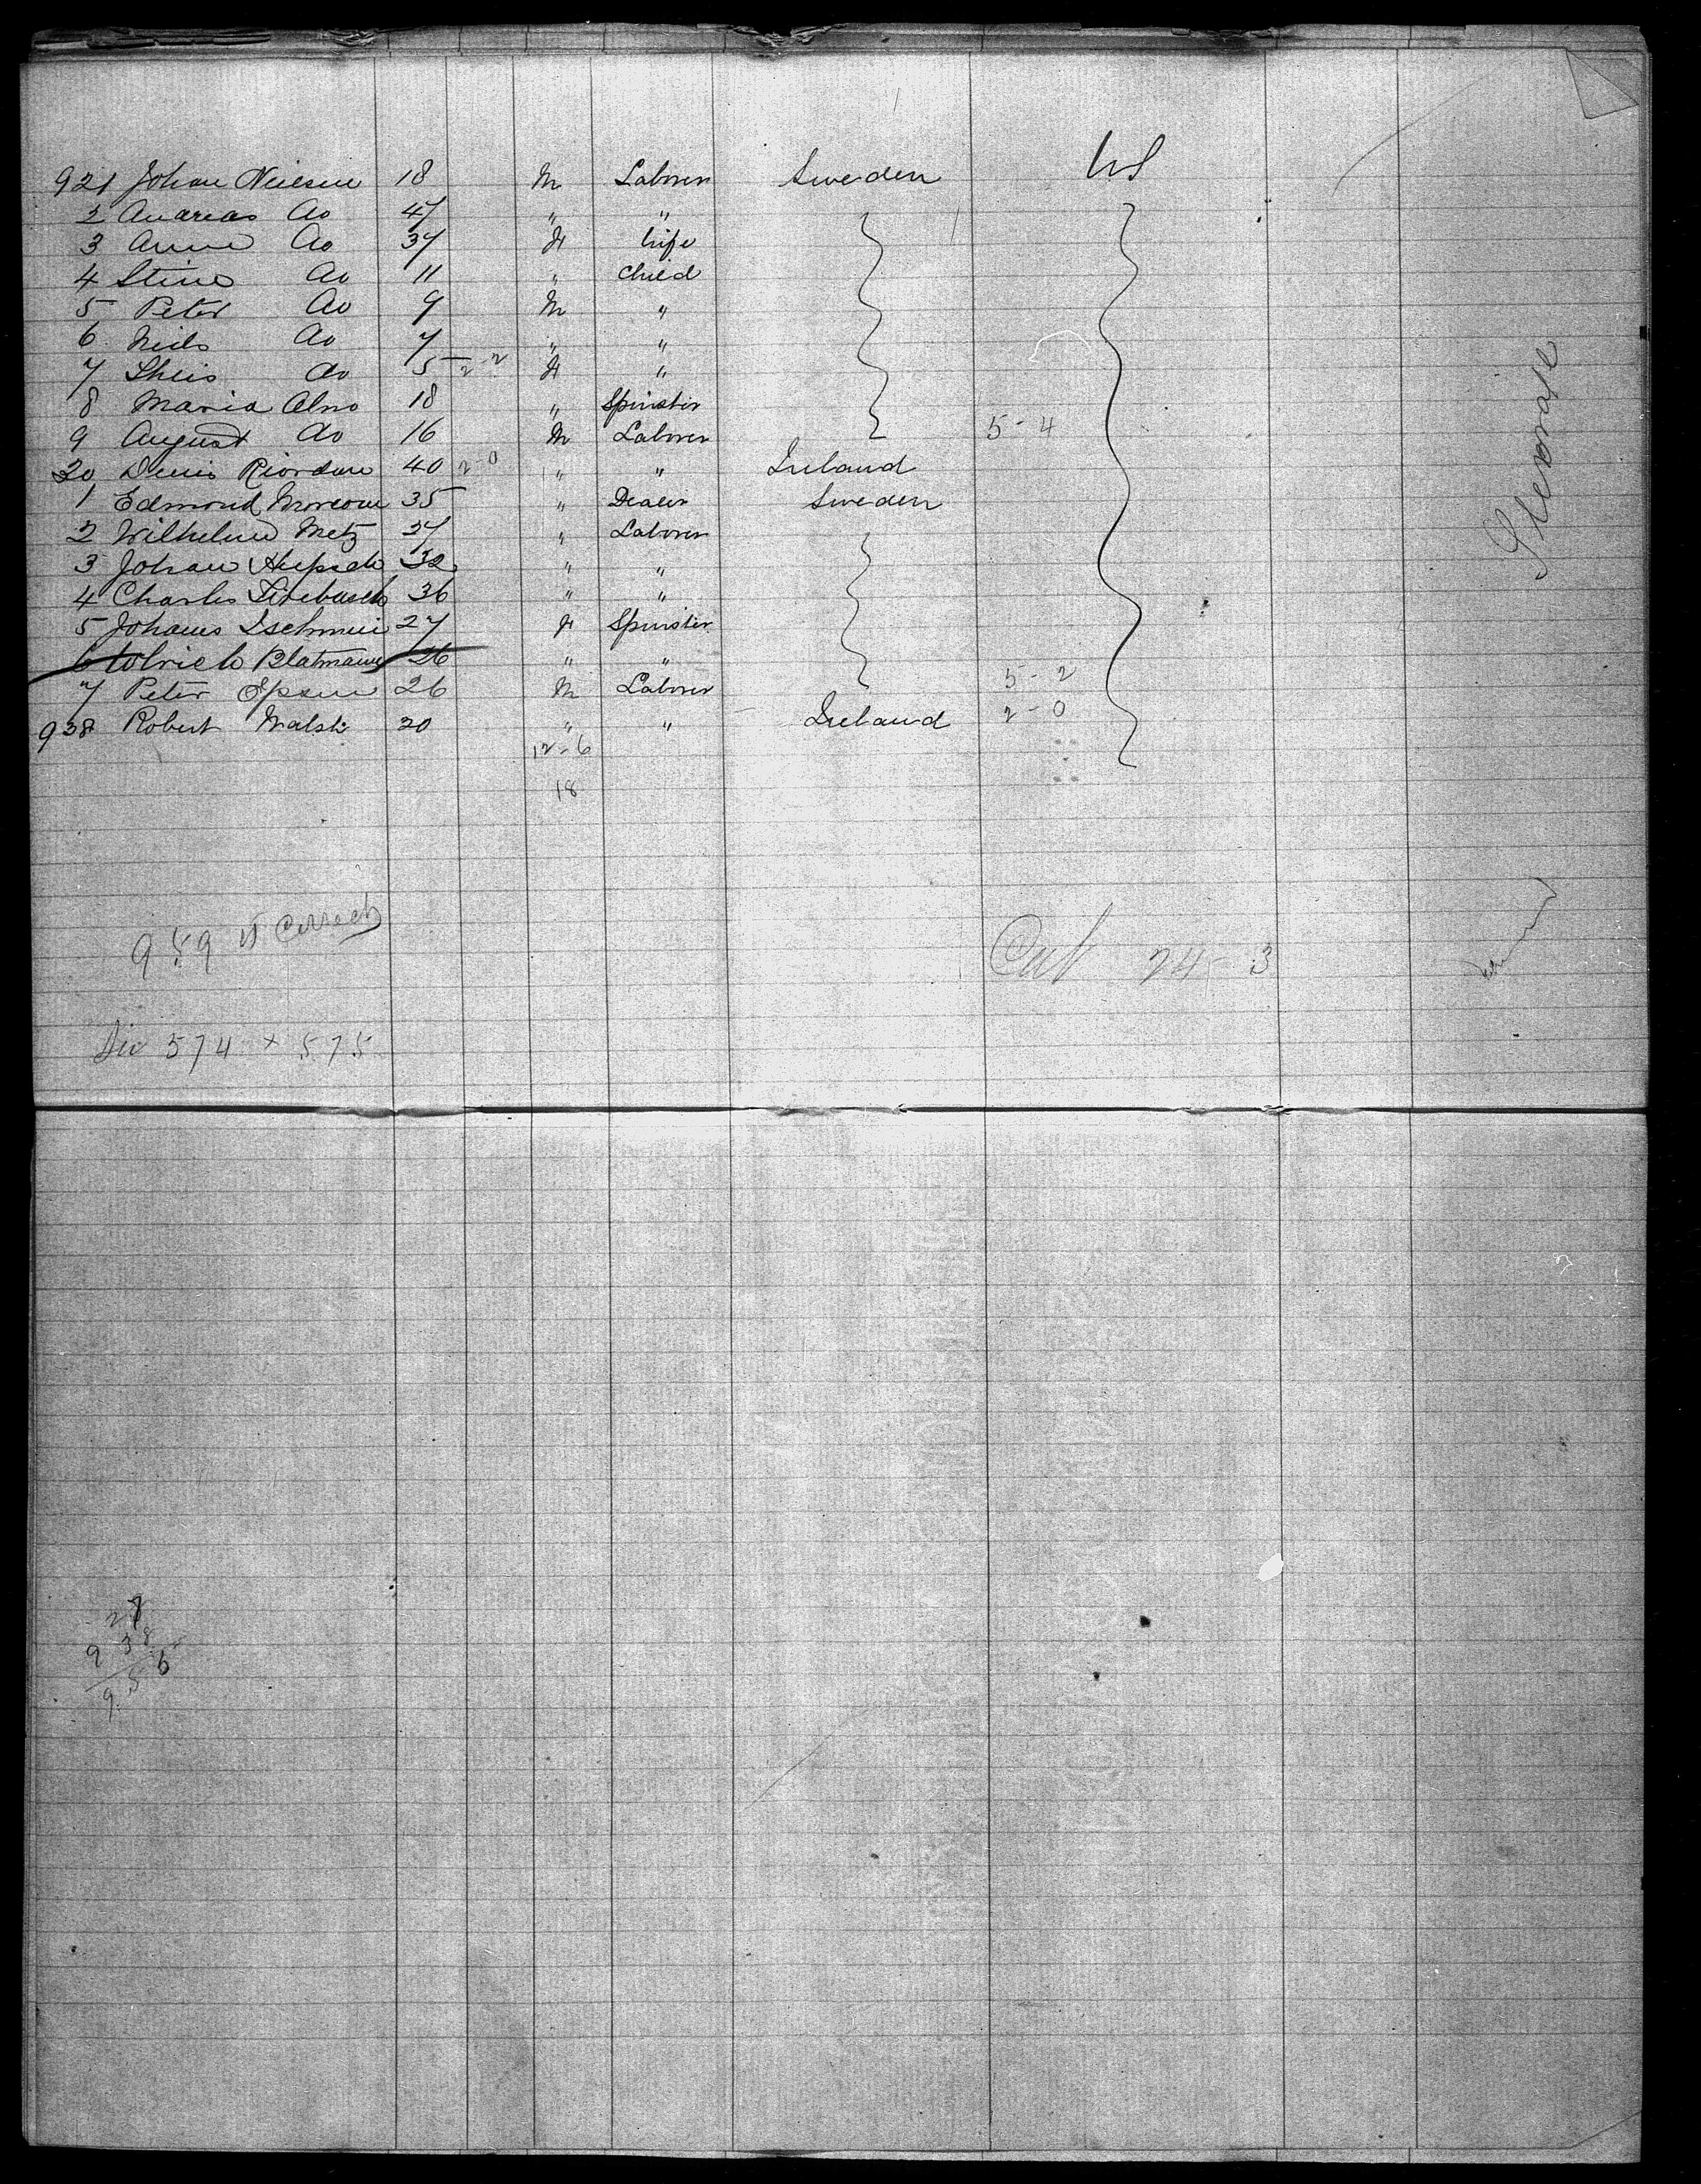 921 Johan Nielsen 18 M Laborer Sweden US
2 Andreas do 47 " "
3 Anne do 37 F Wife
4 Stine do 11 " Child
5 Peter do 9 M "
6 Niels do 7 " "
7 do 5 2-2 F "
8 Maria Olno 18 " Spinster
9 August do 16 M Laborer 5-4
30 Denis Riordan 40 2-0 " " Ireland
1 Edmond 35 " Dealer Sweden
2 Wilhelm Metz 27 " Laborer
3 Johan 32 " "
4 Charles 36 " "
5 27 F Spinster
6 Ulrich Blatmann 26 " "
7 Peter 26 M Laborer 5-2
938 Robert Walsh 20 " " Ireland 2-0
12-6
18
Steerage
959 is Correct
24-3
574 + 575